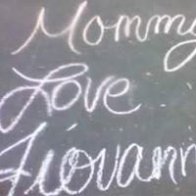 Mommy
Love
Giovann